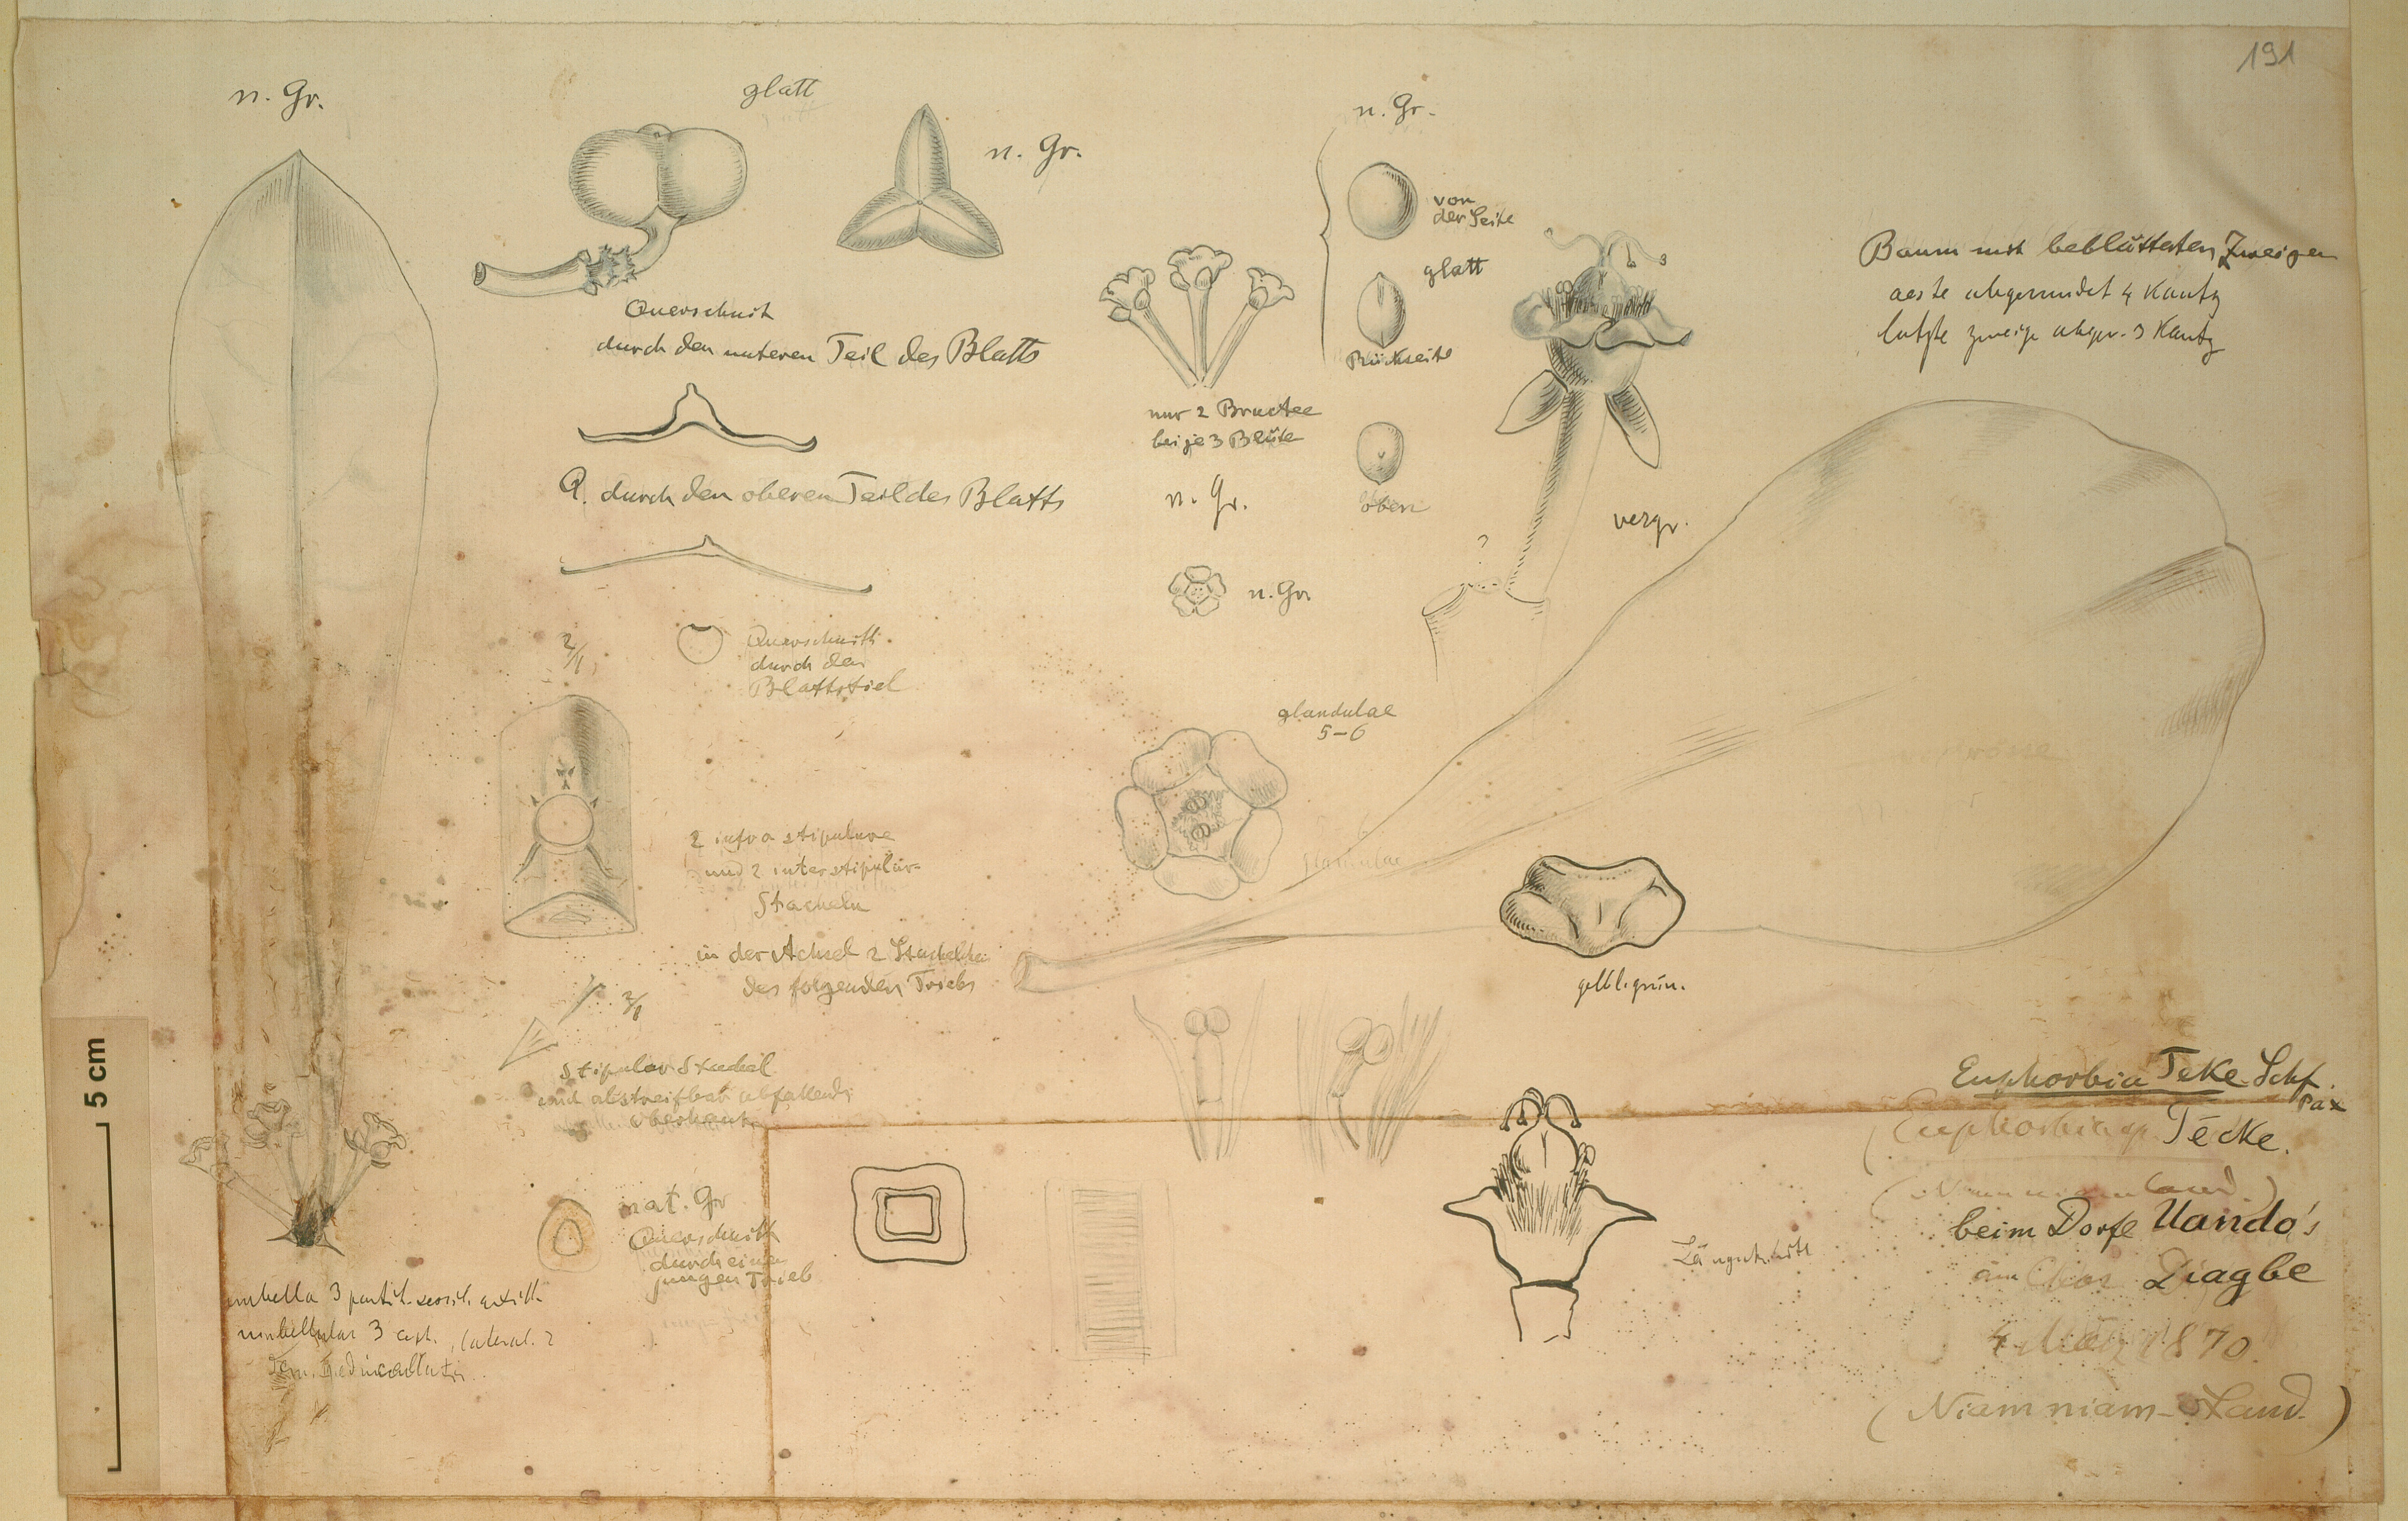 191
n. Gr.
glatt
n. Gr.
n. Gr.
von
der Seite
glatt
Rückseite
oben
Querschnit
durch den unteren Teil des Blatts
Q. durch den oberen Teil des Blatts
2/1
Querschnitt
durch den
Blattstiel
nur 2 Bractee
bei je 3 Blüte
n. Gr.
n. Gr.
?
vergr.
Baum mit beblätterten Zweigen
aeste abgerundet 4 Kantg
letzte zweige abgr. 3 Kantg
glandulae
5-6
glandulae
2 infra stipulare
und 2 interstipular-
Stacheln
in der Achsel 2 Stachelchen
des folgenden Triebs
2/1
Stipular Stachel
und abstreifbar abfallende
Oberhaut
gelbl. grün.
nat. Gr
Querschnitt
durch einen
jungen Trieb
umbella 3 partit. sessil. axill.
umbellular 3 ceph., lateral. 2
Längschnitt
Euphorbia Teke Schf.
Pax
(Euphorbia sp Tēcke.
(Niamniam Land.)
beim Dorfe Uando's
am Diagbe
4 März 1870.
(Niam niam-Land.)
5 cm